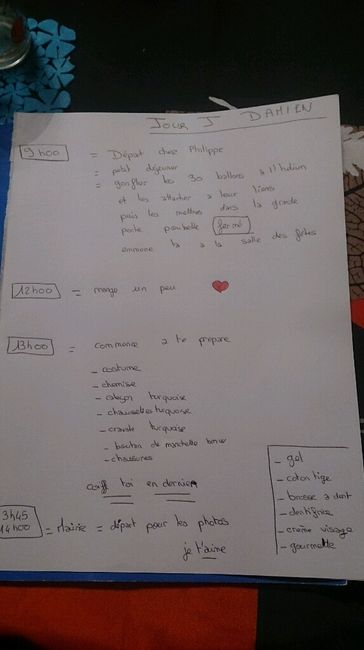 JOUR J DAMIEN
9h00 = Départ chez Philippe
= petit déjeuner
= gonfler les 30 ballons à l'hélium
et les attacher a leur liens
puis les mettre dans la grande
poche poubelle fermé
emmene la a la salle des fêtes
12h00 = mange un peu ❤
13h00 = commence a te prepare
- costume
- chemise
- caleçon turquoise
- chaussettes turquoise
- cravate turquoise
- bouton de manchette
- chaussures
coiff toi en dernier
3h45
14h00 = Mairie = départ pour les photos
je t'aime
- gel
- coton tige
- brosse a dent
- dentifrice
- crème visage
- gourmette